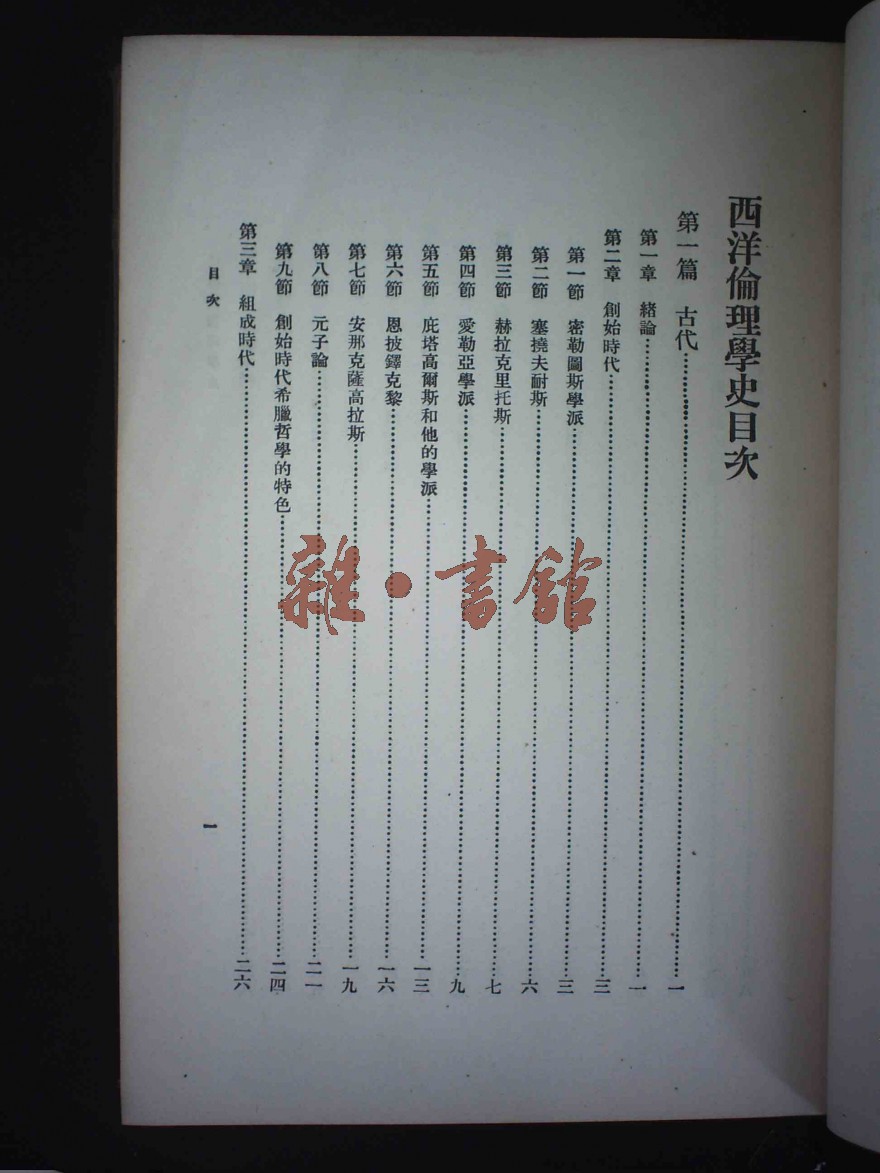 西洋倫理學史目次
第一篇 古代……一
第一章 緒論……一
第二章 創始時代……三
第一節 密勒圖斯學派……三
第二節 塞撓夫耐斯……六
第三節 赫拉克里托斯……七
第四節 愛勒亞學派……九
第五節 庇塔高爾斯和他的學派……一三
第六節 恩披鐸克黎……一六
第七節 安那克薩高拉斯……一九
第八節 元子論……二一
第九節 創始時代希臘哲學的特色……二四
第三章 組成時代……二六
目次
一
雜·書館